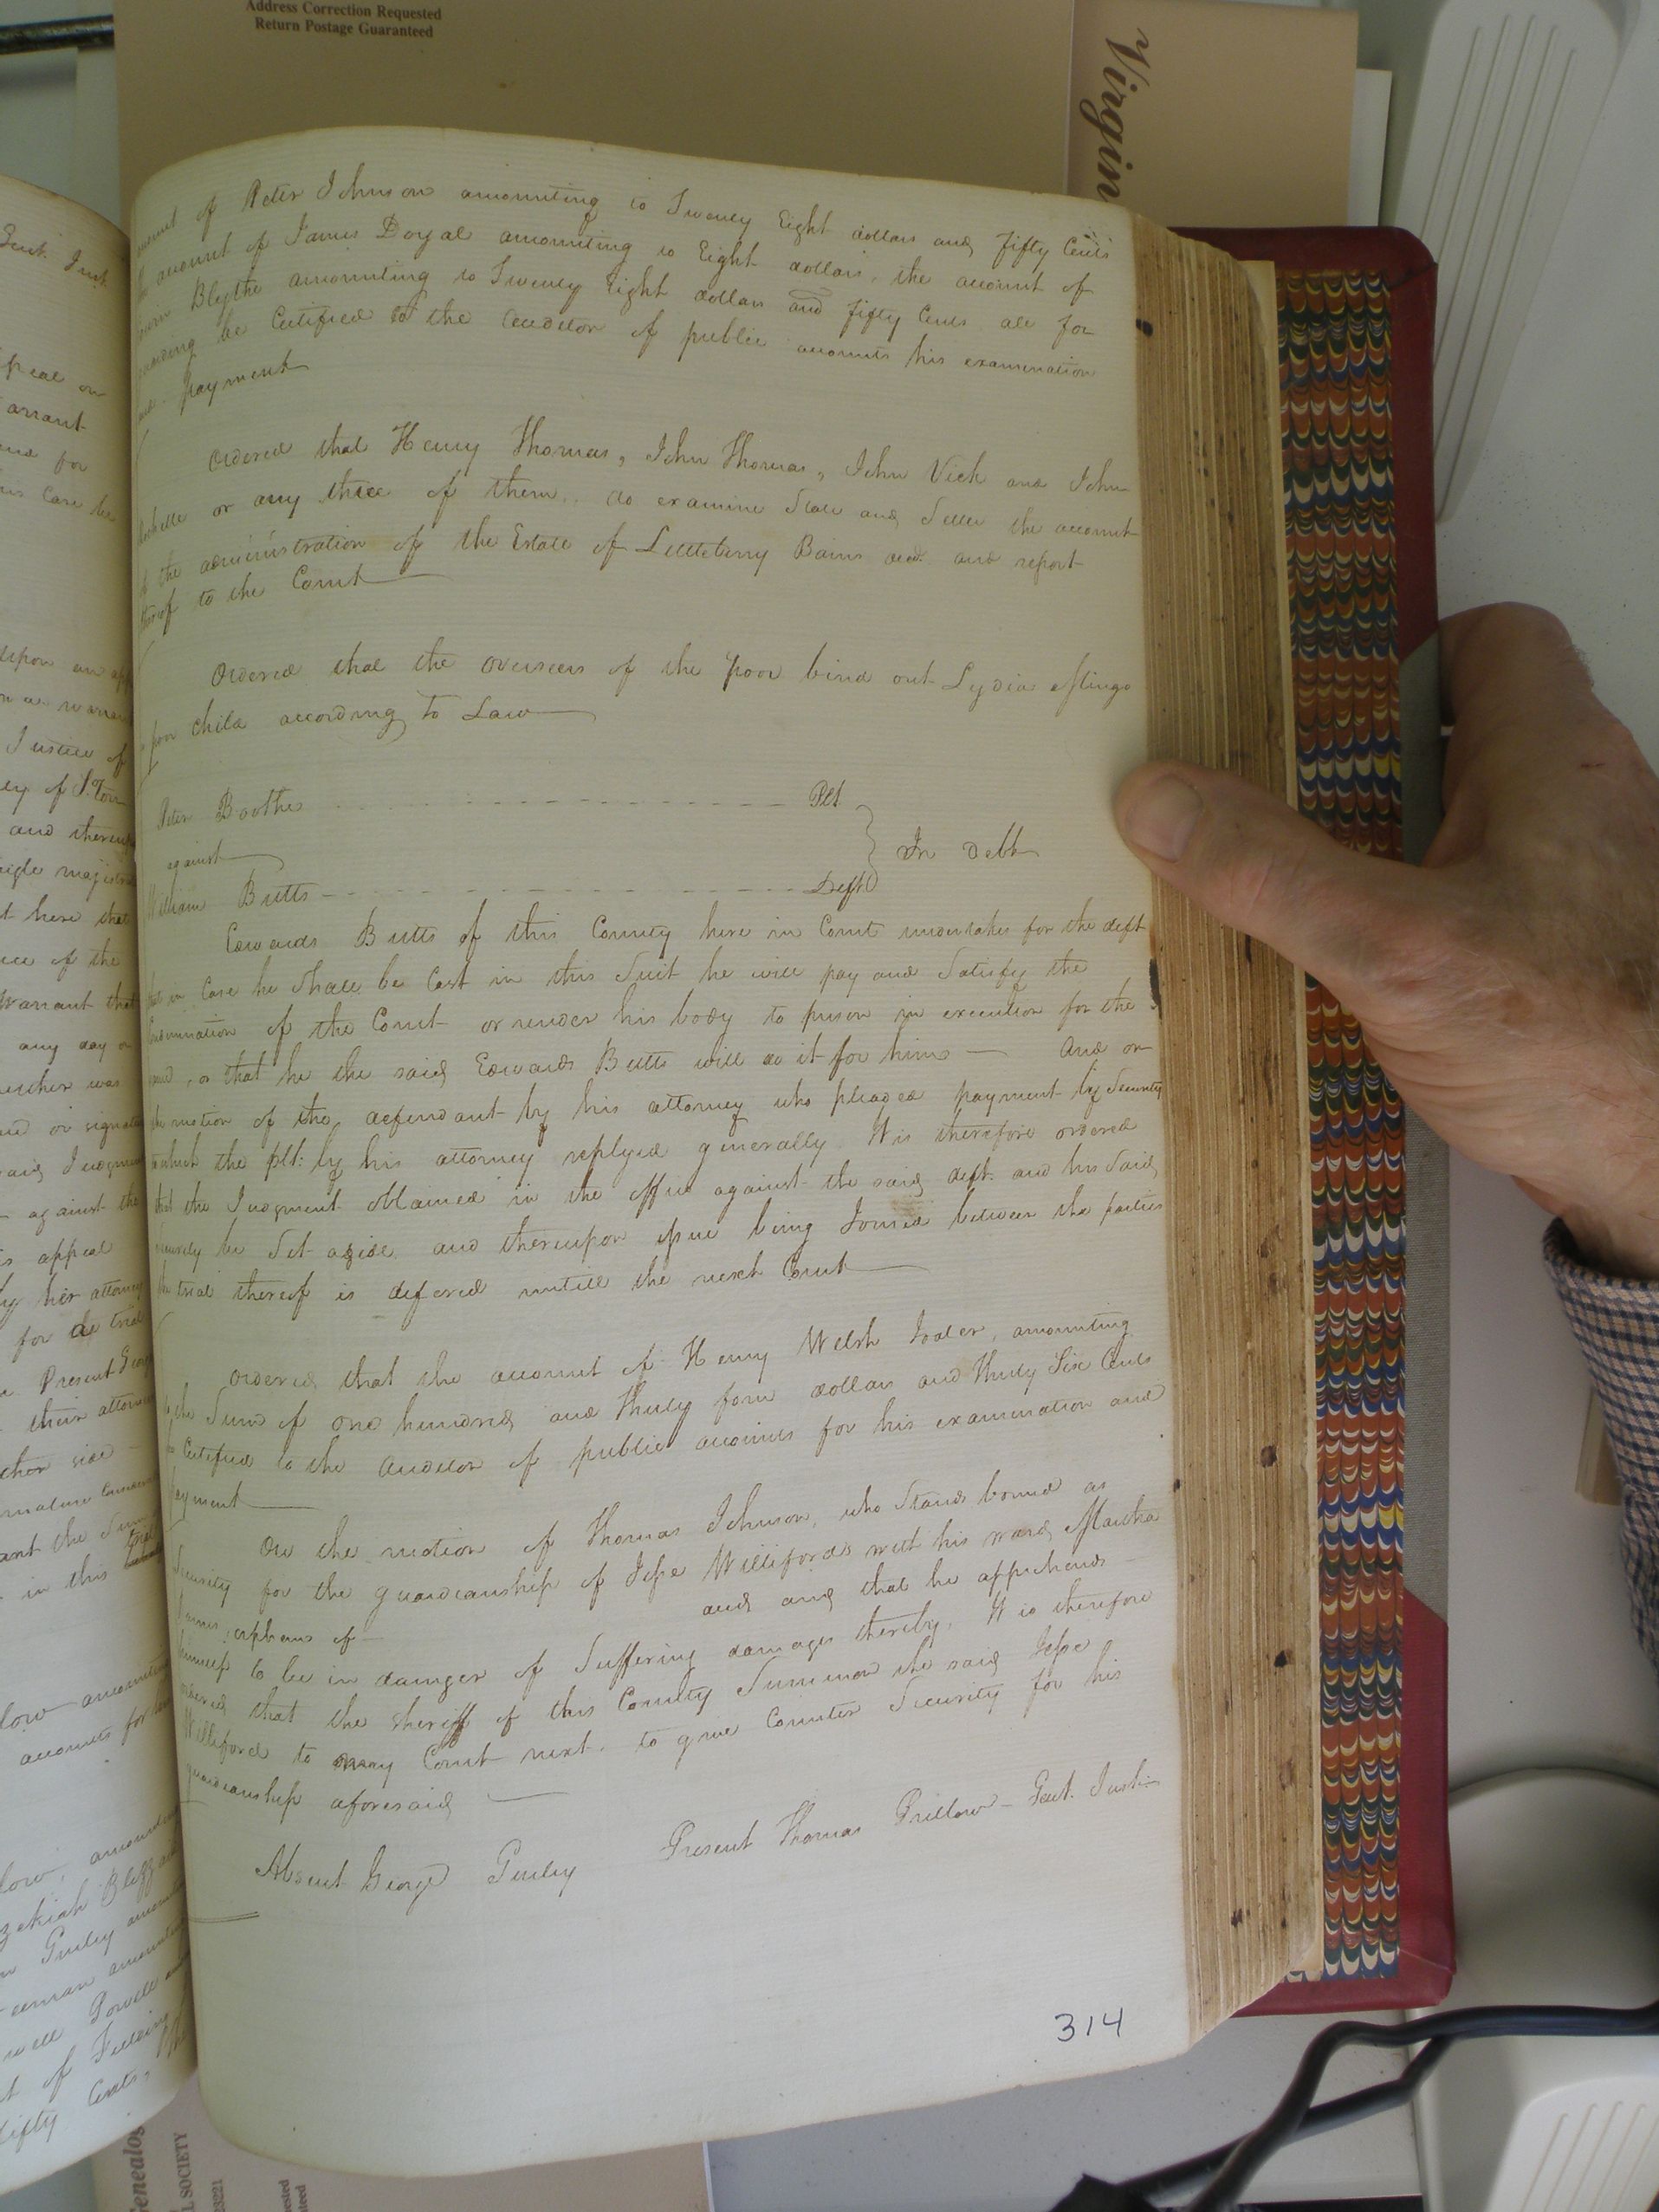 Address Correction Requested
Return Postage Guaranteed
Virgin
of Peter Johnson amounting to Twenty Eight dollars and fifty Cents
account of James Doyal amounting to Eight dollars, the account of
Blythe amounting to Twenty Eight dollars and fifty Cents all for
be Certified to the Auditor of public accounts his examination
and payment
Ordered that Henry Thomas, John Thomas, John Vick and John
Rochelle or any three of them.. do examine State and Settle the account
of the administration of the Estate of Littleberry Bains decd. and report
thereof to the Court
Ordered that the overseers of the poor bind out Lydia
poor child according to Law
Peter Booths Plt
against
In debt
William Butts Deft
Edwards Butts of this County here in Court undertakes for the deft
that in Case he Shall be Cast in this Suit he will pay and Satisfy the
Condemnation of the Court or render his body to prison in execution for the
or that he the said Edwards Butts will do it for him And on
the motion of the defendant by his attorney who pleaded payment by Security
to which the plt: by his attorney replyed generally. It is therefore ordered
that the Judgment obtained in the office against the said deft. and his Said
security be Set aside and thereupon issue being Joined between the parties
the trial thereof is defered untill the next Court
Ordered that the account of Henry Welsh Joaler, amounting
to the Sum of one hundred and Thirty four dollars and Thirty Six Cents
be Certified to the Auditor of public accounts for his examination and
payment
On the motion of Thomas Johnson, who Stands bound as
Security for the guardianship of Jesse Williford with his ward Martha
orphans of and that he apprehends
himself to be in danger of Suffering damages thereby. It is therefore
ordered that the sheriff of this County Summon the said Jesse
Williford to may Court next. to give Counter Security for his
guardianship aforesaid
Absent George Gurley Present Thomas Pretlow Gent. Justi
314
Gent. Just
arrant
and for
Justice of
and
here that
of the
Warrant that
any day
was
against the
appeal
her attorney
for trial
Present
their attor
side
in this
low
accounts for
Gurley
Powell
of
fifty Cents,
Genealog
L SOCIETY
23221